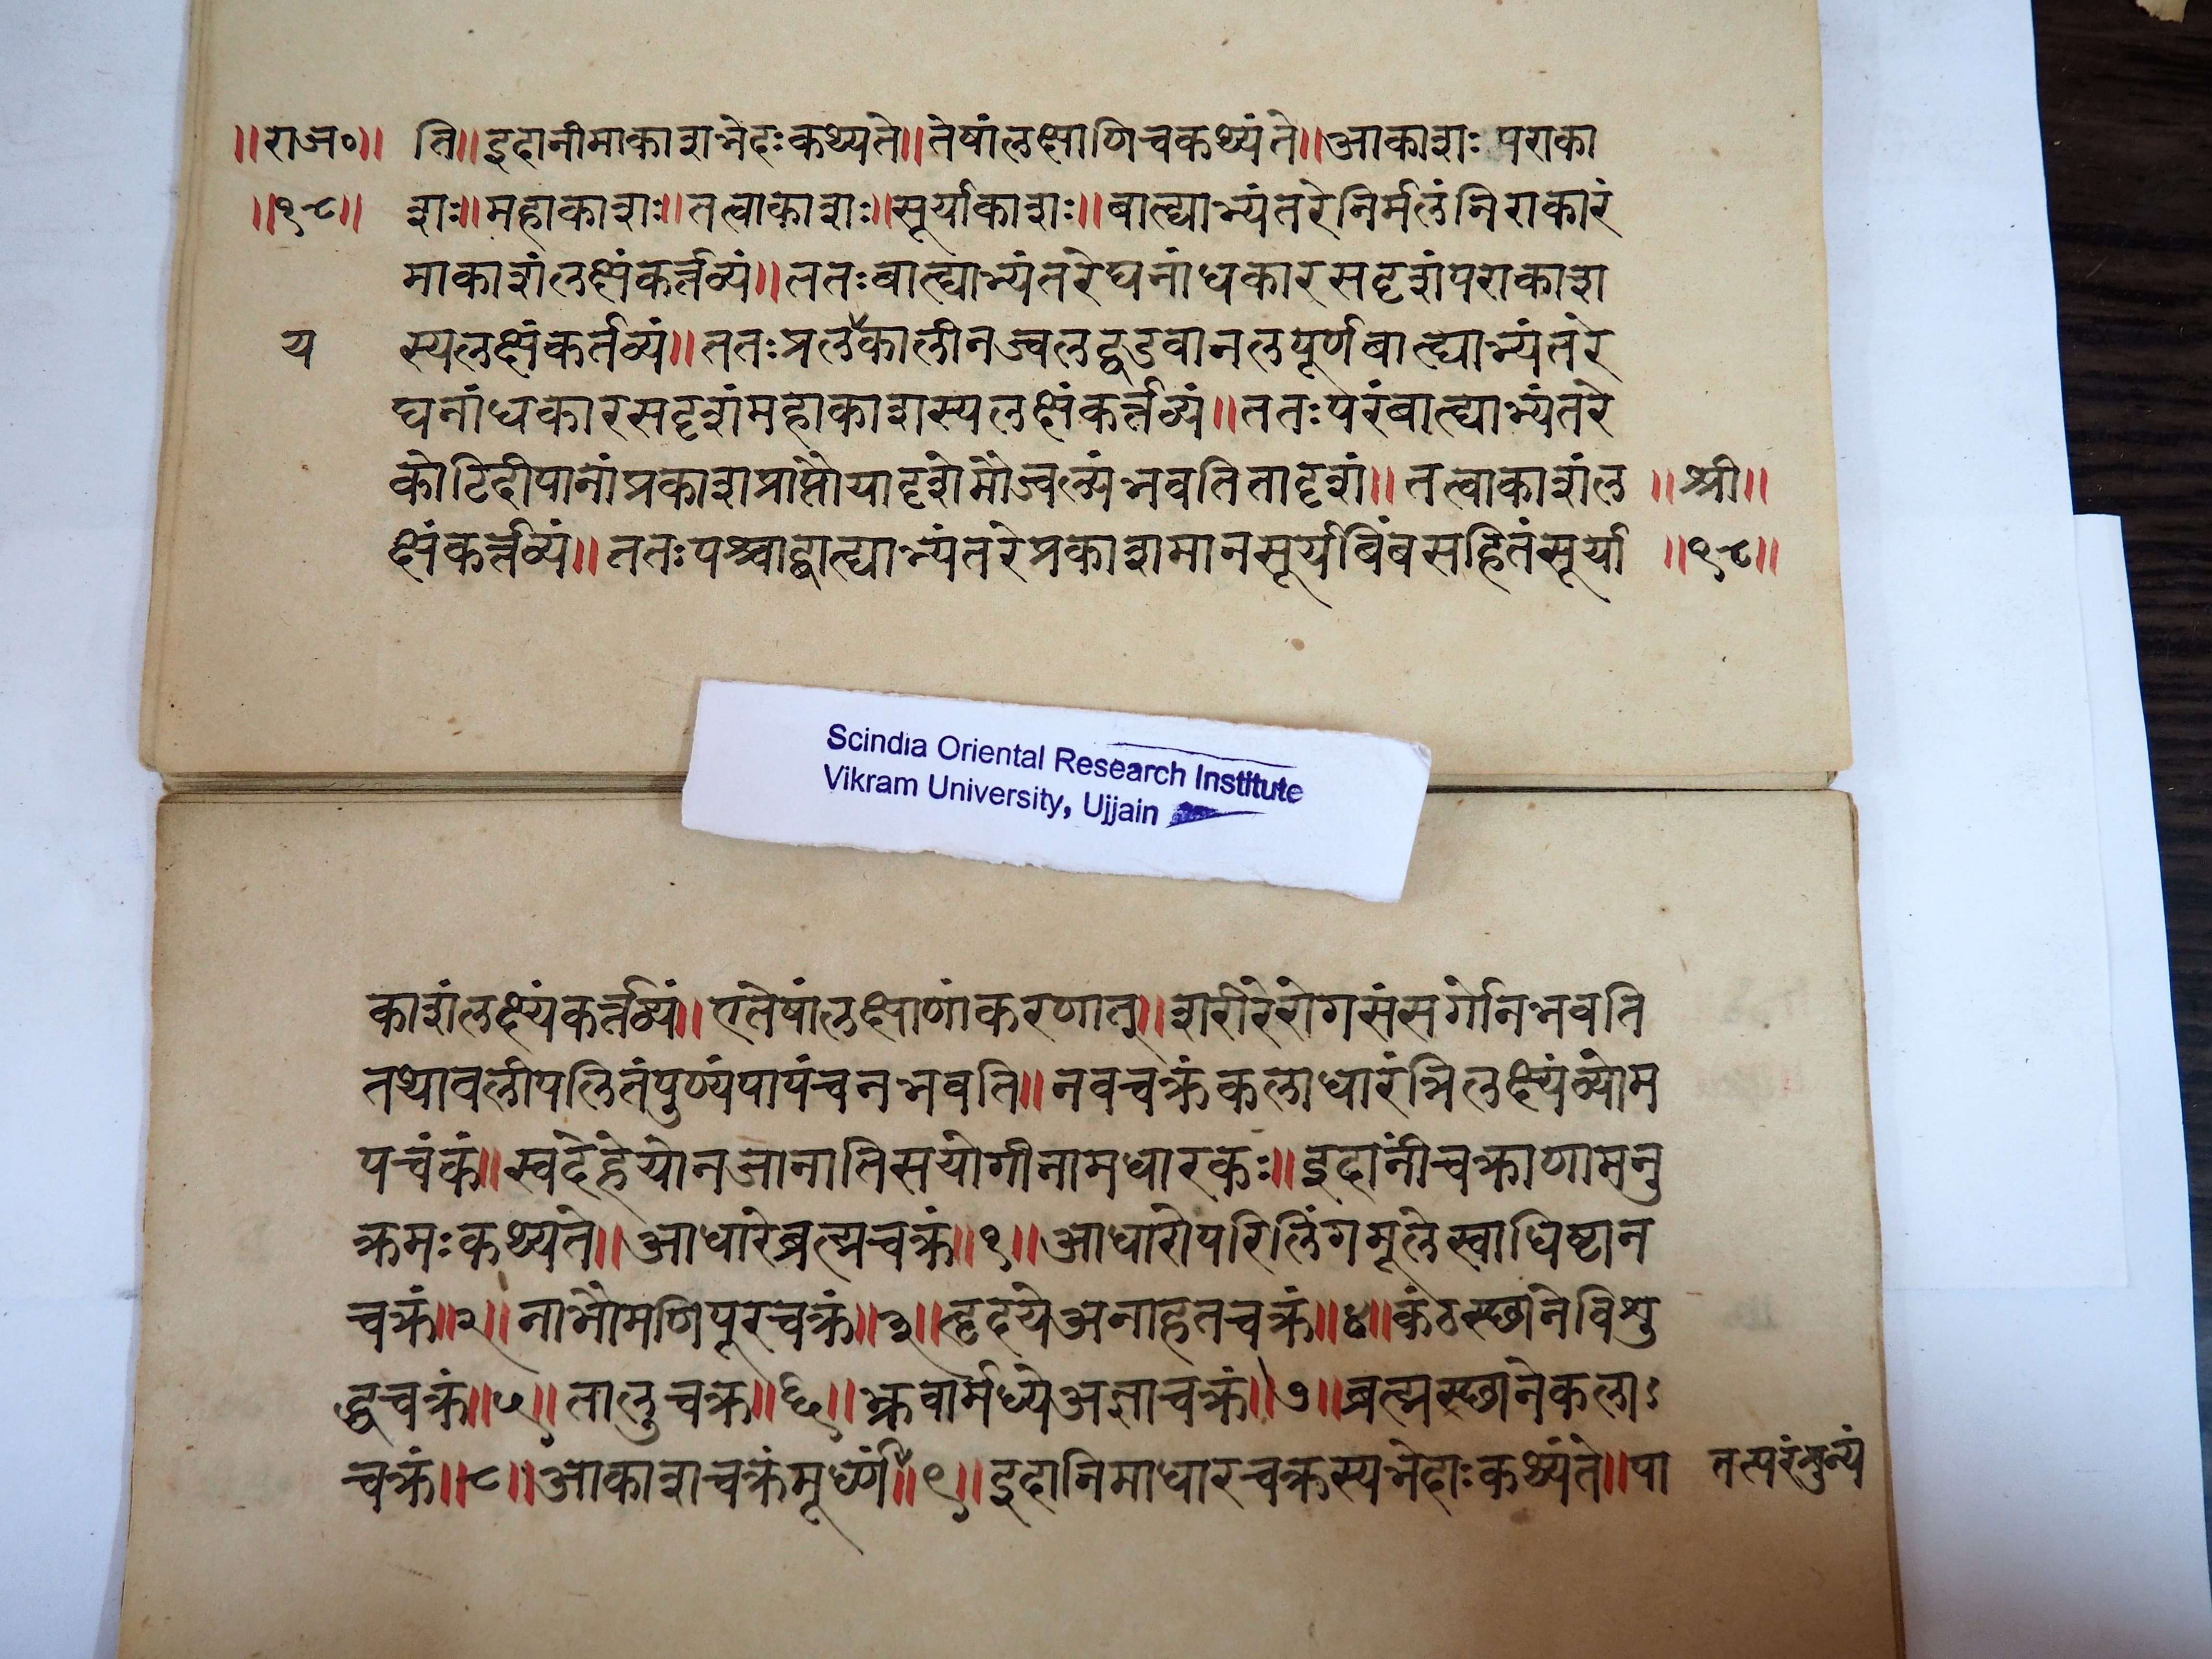 ॥राज०॥ ति॥इदानीमाकाशभेदःकथ्यते॥तेषांलक्षाणिचकथ्यंते॥आकाशः पराका
॥१८॥ शः॥महाकाशः॥तत्वाकाशः॥सूर्याकाशः॥बाह्याभ्यंतरेनिर्मलंनिराकारं
माकाशंलक्षंकर्त्तव्यं॥ततःबाह्याभ्यंतरेघनांधकारसदृशंपराकाश
य स्यलक्षंकर्तव्यं॥ततःप्रलकालीनज्वलद्वडवानलपूर्णबाह्याभ्यंतरे
घनांधकारसदृशंमहाकाशस्यलक्षंकर्त्तव्यं॥ततःपरंबाह्याभ्यंतरे
कोटिदीपानांप्रकाशप्राप्तौयादृशेमौज्वल्यंभवतितादृशं॥तत्वाकाशंल ॥श्री॥
क्षंकर्त्तव्यं॥ततःपश्चाद्बाह्याभ्यंतरेप्रकाशमानसूर्यबिंबसहितंसूर्या ॥१८॥
Scindia Oriental Research Institute
Vikram University, Ujjain
काशंलक्ष्यंकर्त्तव्यं॥एतेषांलक्षाणांकरणात्॥शरीरेरोगसंसर्गोनभवति
तथावलीपलितंपुण्यंपापंचनभवति॥नवचक्रंकलाधारंत्रिलक्ष्यंव्योम
पचंकं॥स्वदेहेयोनजानातिसयोगीनामधारकः॥इदांनीचक्राणामनु
क्रमःकथ्यते॥आधारेब्रह्मचक्रं॥१॥आधारोपरिलिंगमूलेस्वाधिष्टान
चक्रं॥२॥नाभौमणिपूरचक्रं॥३॥हृदयेअनाहतचक्रं॥४॥कंठस्छानेविशु
द्धचक्रं॥५॥तालुचक्र॥६॥भ्रुवोर्मध्येअज्ञाचक्रं॥७॥ब्रह्मस्छानेकला
चक्रं॥८॥आकाशचक्रंमूर्ध्णि॥९॥इदानिमाधारचक्रस्यभेदाःकथ्यंते॥पा तत्परंशुन्यं